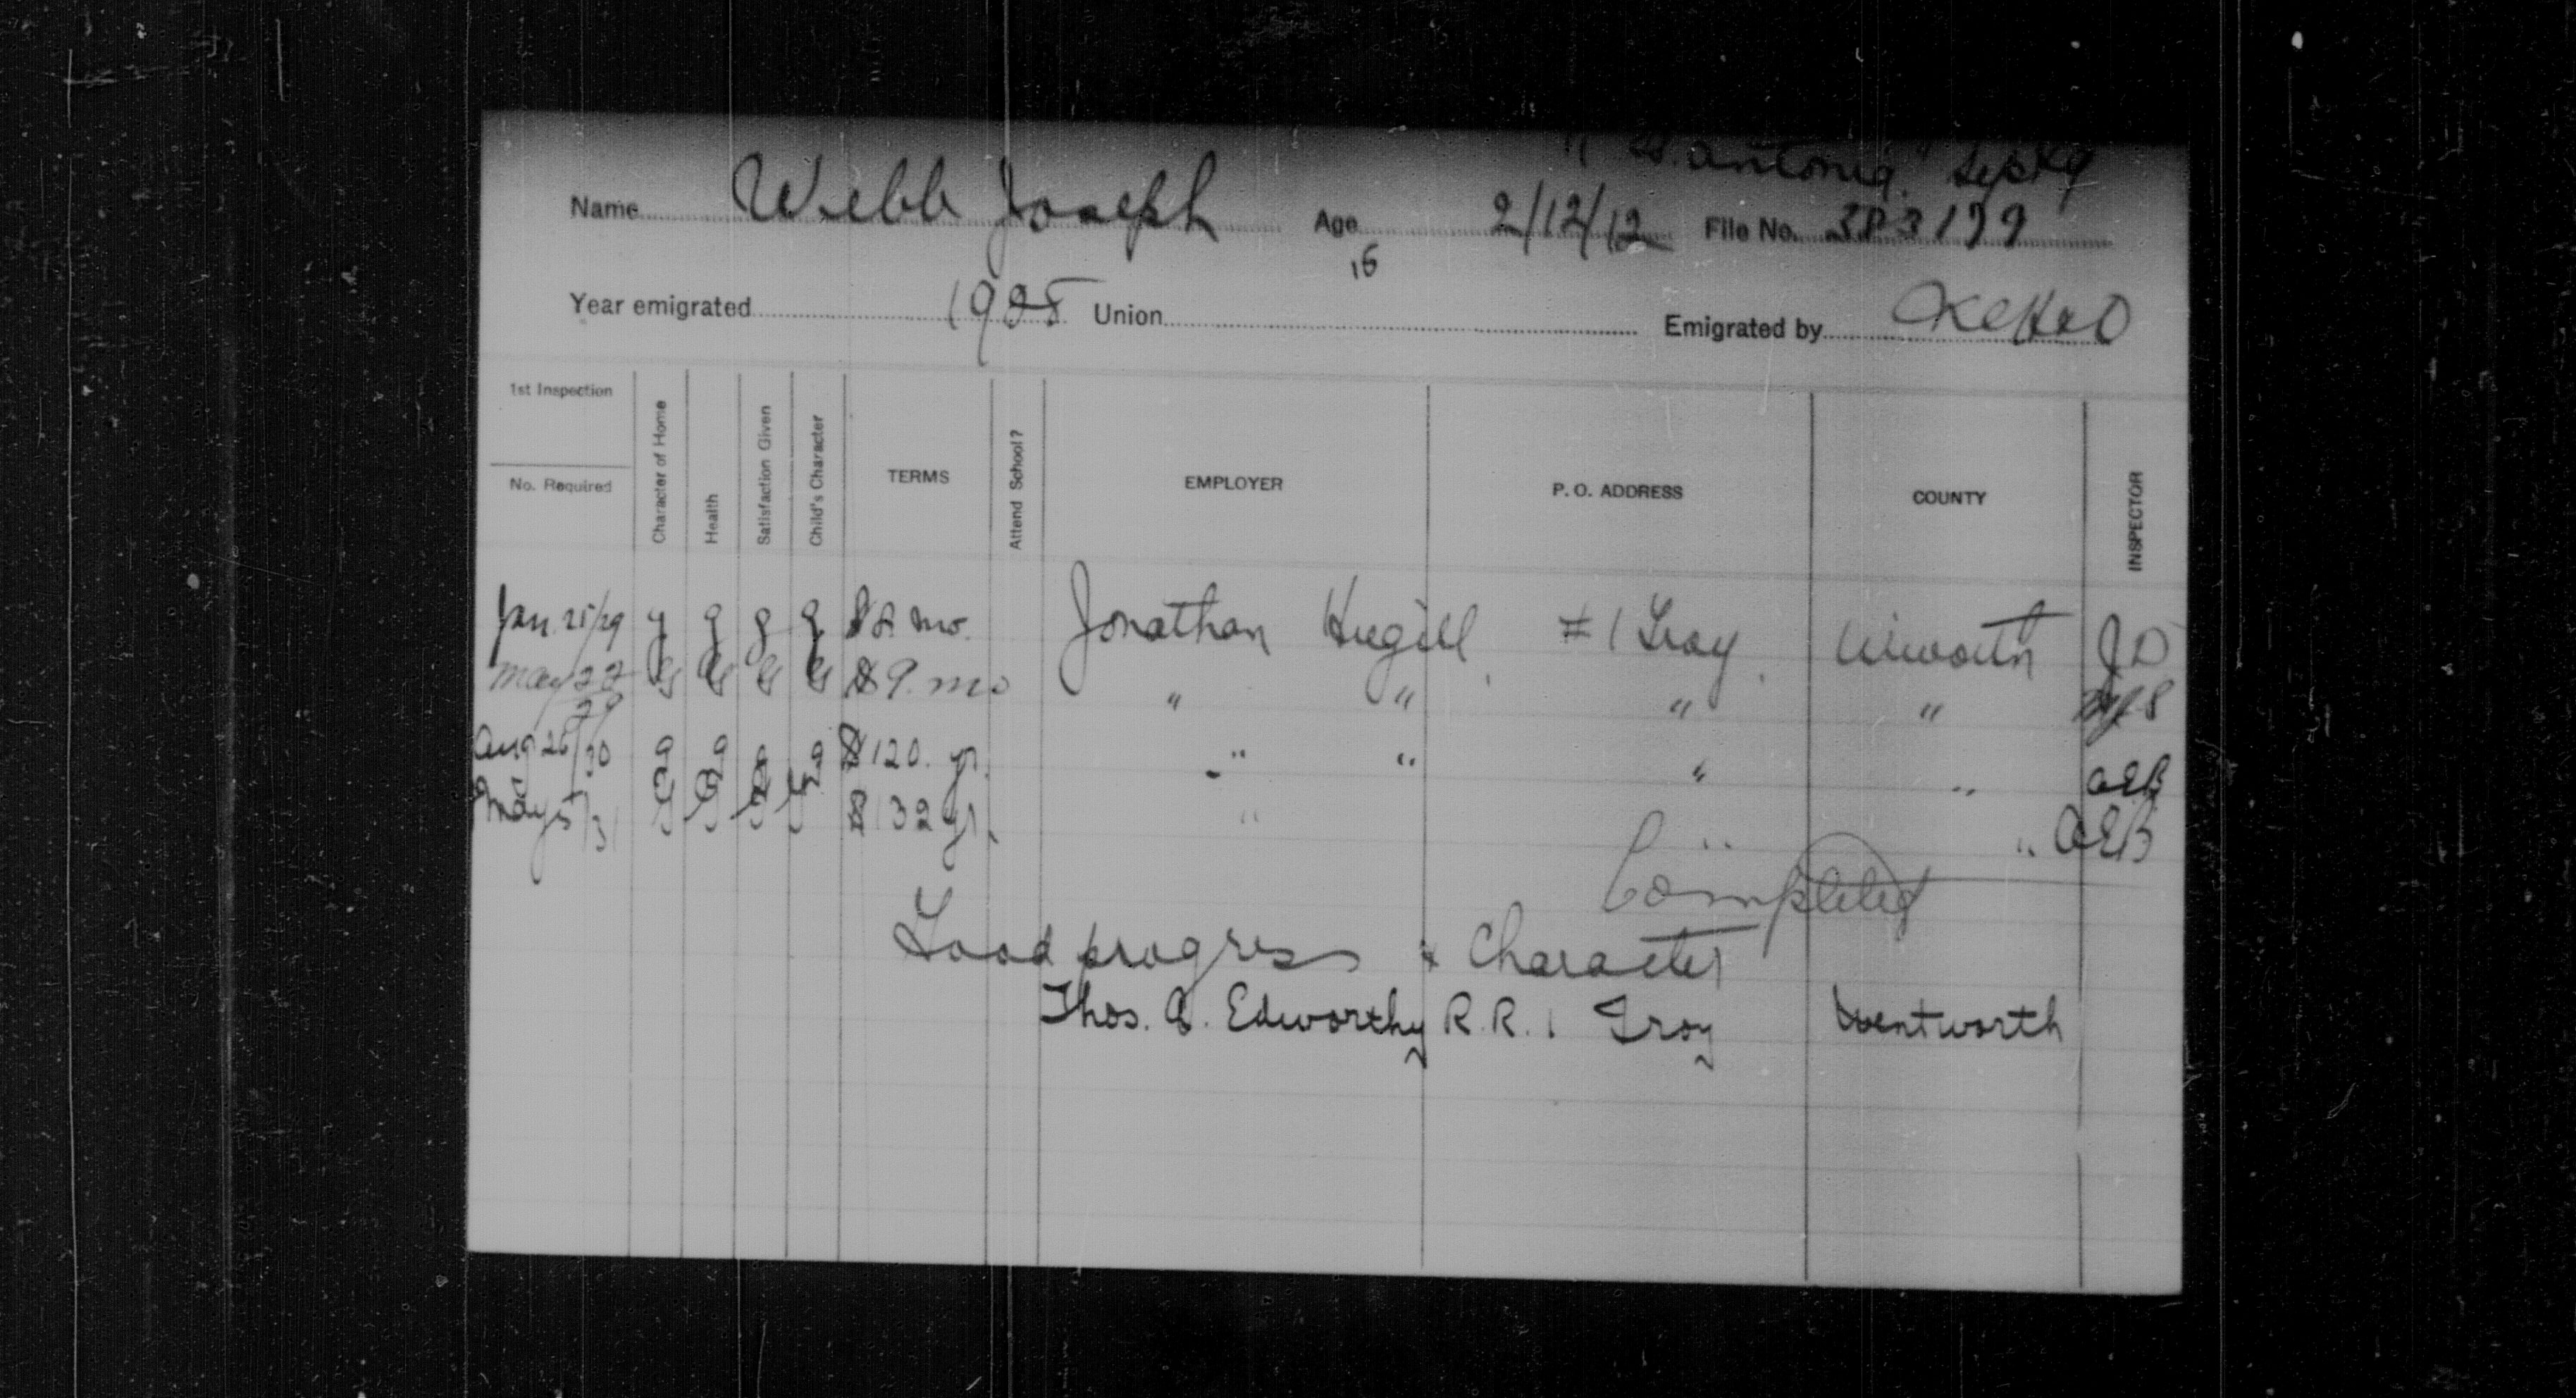 Antonia" Sept 9
Name Webb Joseph Age 2/12/12 File No. 383199
16
Year emigrated 1928 Union Emigrated by
1st Inspection
No. Required
Character of Home
Health
Satisfaction Given
Child's Character
TERMS
Attend School?
EMPLOYER
P. O. ADDRESS
COUNTY
INSPECTOR
Jan. 25/29 g g g g $8 mo. Jonathan Hugill, #1 Troy, W'worth JD
May 22/29 G G G G $9. mo " " " "
Aug 26/30 g g g g $120. yr. " " " " AEB
May 5/31 g g g g $132 yr. " " " AEB
Completed
Good progress & Character
Thos. A. Edworthy R.R. 1 Troy Wentworth